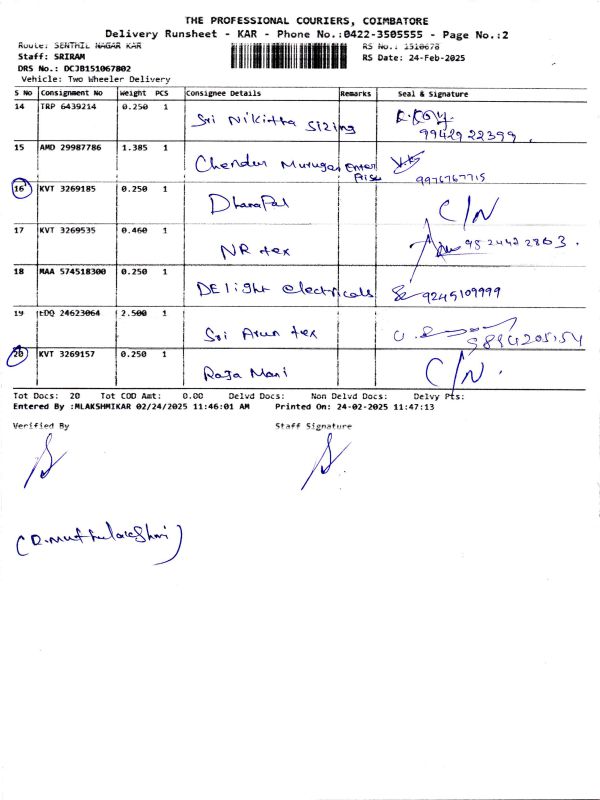 THE PROFESSIONAL COURIERS, COIMBATORE
Delivery Runsheet - KAR - Phone No.:0422-3505555 - Page No.:2
Route: SENTHIL NAGAR KAR RS No.: 1510678
Staff: SRIRAM RS Date: 24-Feb-2025
DRS No.: DCJB151067802
Vehicle: Two Wheeler Delivery
S No Consignment No Weight PCS Consignee Details Remarks Seal & Signature
14 TRP 6439214 0.250 1 Sri Nikitha Sizing
99429 22399.
15 AMD 29987786 1.385 1 Chendur Murugan Enter Prise
9976767715
16 KVT 3269185 0.250 1 DharaPal C/N
17 KVT 3269535 0.460 1 NR tex 9524422863.
18 MAA 574518300 0.250 1 DElight electricals 9245109999
19 tDQ 24623064 2.500 1 Sri Arun tex
20 KVT 3269157 0.250 1 Raja Mani C/N.
Tot Docs: 20 Tot COD Amt: 0.00 Delvd Docs: Non Delvd Docs: Delvy Pts:
Entered By :MLAKSHMIKAR 02/24/2025 11:46:01 AM Printed On: 24-02-2025 11:47:13
Verified By Staff Signature
(D.Muthulakshmi)